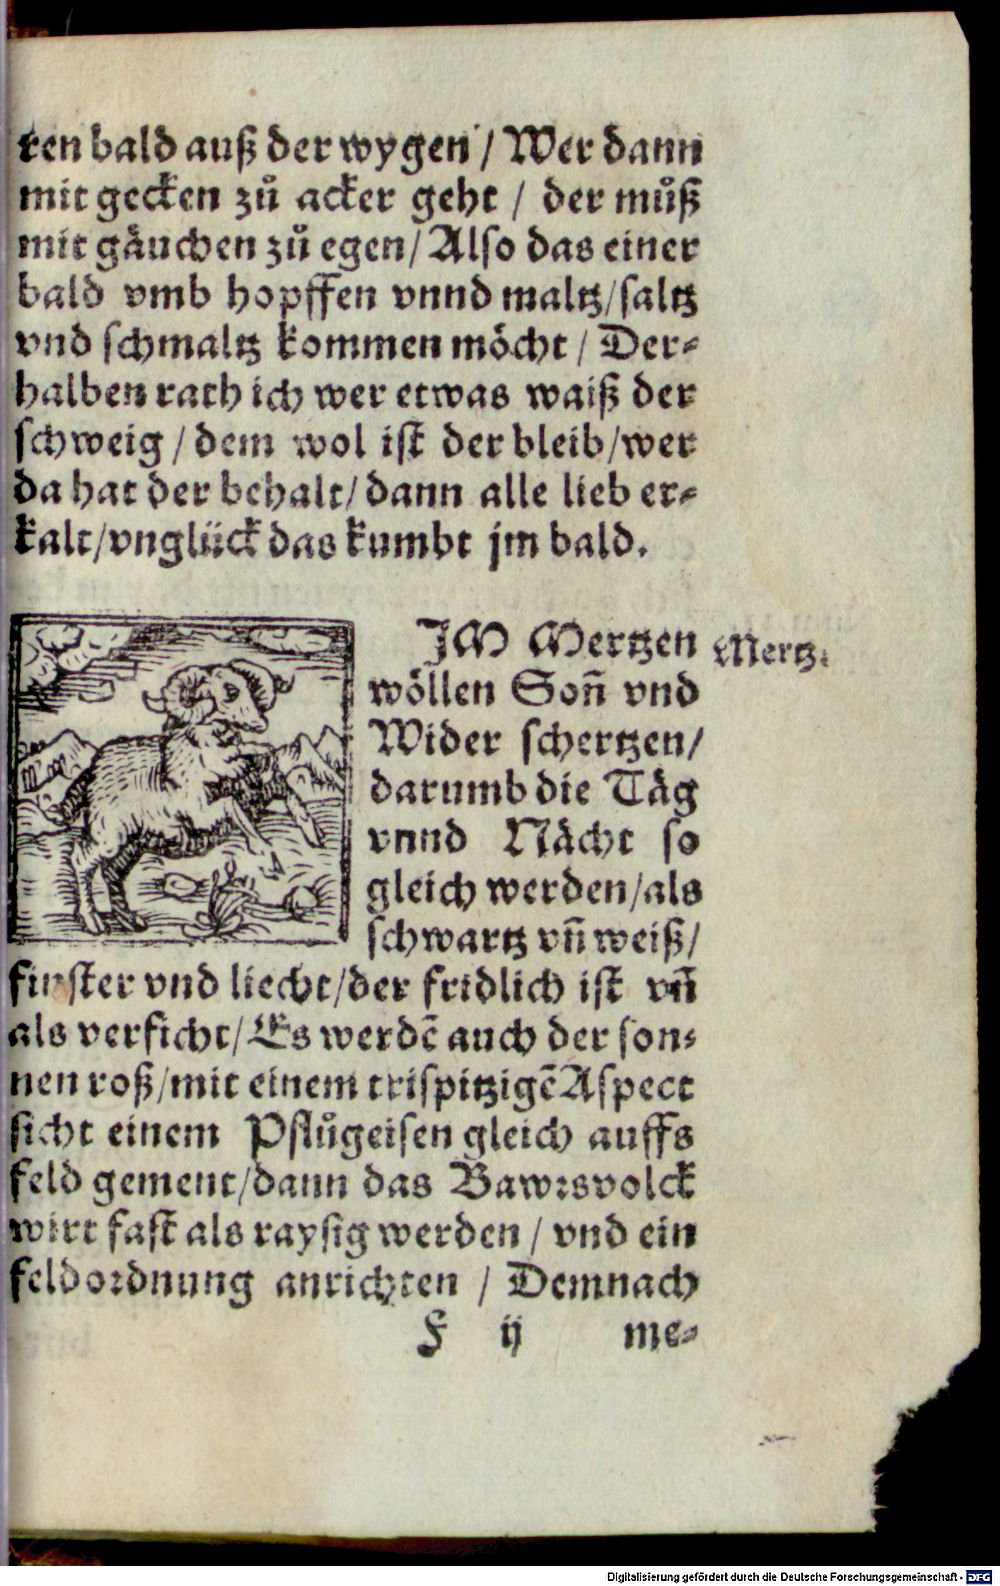 ten bald auß der wygen / Wer dann
mit gecken zů acker geht / der můß
mit gäuchen zů egen / Also das einer
bald vmb hopffen vnnd maltz / saltz
vnd schmaltz kommen möcht / Der⸗
halben rath ich wer etwas waiß der
schweig / dem wol ist der bleib / wer
da hat der behalt / dann alle lieb er⸗
kalt / vnglück das kumbt jm bald.
IM Mertzen
Mertz.
wöllen Soñ vnd
Wider schertzen /
darumb die Täg
vnnd Nächt so
gleich werden / als
schwartz vñ weiß /
finster vnd liecht / der fridlich ist vñ
als versicht / Es werdē auch der son⸗
nen roß / mit einem trispitzigē Aspect
sicht einem Pflůgeisen gleich auffs
feld gement / dann das Bawrsvolck
wirt fast als raysig werden / vnd ein
feldordnung anrichten / Demnach
F ij me⸗
Digitalisierung gefördert durch die Deutsche Forschungsgemeinschaft - DFG